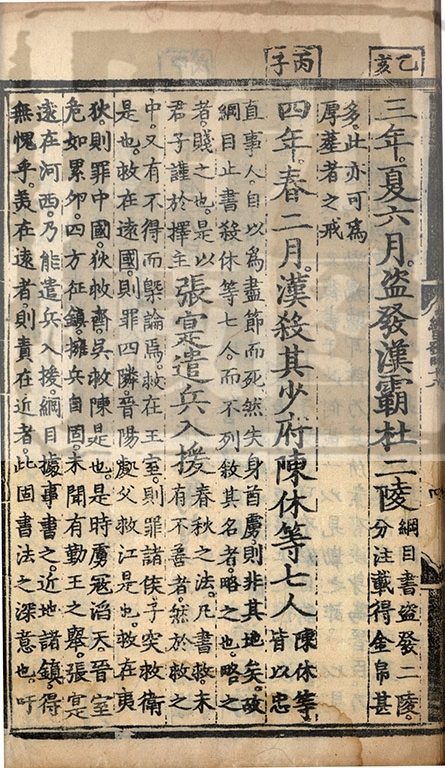 乙亥
三年。夏六月。盜發漢霸杜二陵
綱目書盜發二陵。
分注載得金帛甚
多。此亦可為
厚葬者之戒
丙子
四年。春二月。漢殺其少府陳休等七人
陳休等
皆以忠
直事人。自以為盡節而死。然失身首虜。則非其地矣。故
綱目止書殺休等七人。而不列敘其名者。略之也。略之
者。賤之也。是以
君子謹於擇主
張寔遣兵入援
春秋之法。凡書救未
有不善者。然於救之
中。又有不得而槩論焉。救在王室。則罪諸侯。子突救衛
是也。救在遠國。則罪四隣。晉陽處父救江是也。救在夷
狄。則罪中國。狄救齊。吳救陳是也。是時虜寇滔天。晉室
危如累卵。四方征鎮。擁兵自固。未聞有勤王之舉。張寔
遠在河西。乃能遣兵入援。綱目據事書之。近地諸鎮。得
無愧乎。美在遠者。則責在近者。此固書法之深意也。吁